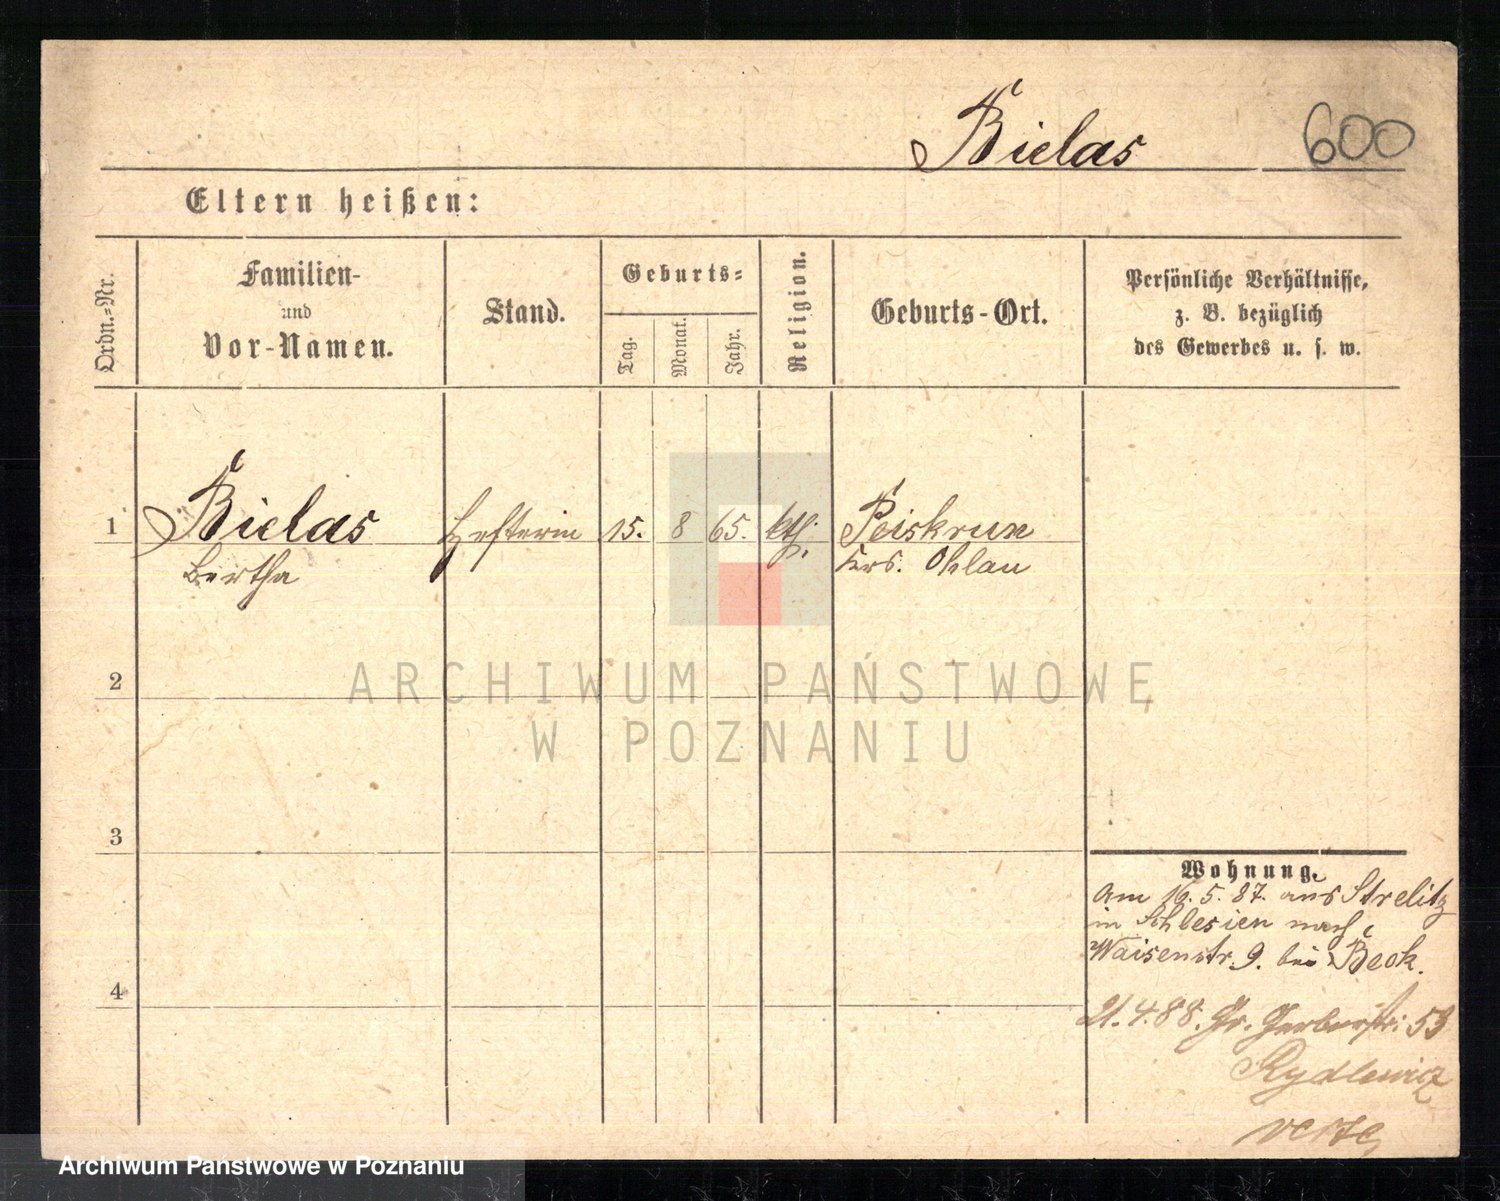 Bielas 600
Eltern heißen:
Ordn.-Nr.
Familien-
und
Vor-Namen.
Stand.
Geburts-
Tag.
Monat.
Jahr.
Religion.
Geburts-Ort.
Persönliche Verhältnisse,
z. B. bezüglich
des Gewerbes u. s. w.
1 Bielas Hefterin 15. 8 65. kth. Peiskrun
Bertha Krs. Ohlau
2
ARCHIWUM PAŃSTWOWE
W POZNANIU
3
Wohnung.
Am 16. 5. 87. aus Strelitz
in Schlesien nach
Waisenstr. 9. bei Beck.
4
21. 4. 88. Gr. Gerberstr. 53
Rydlewicz
verte
Archiwum Państwowe w Poznaniu